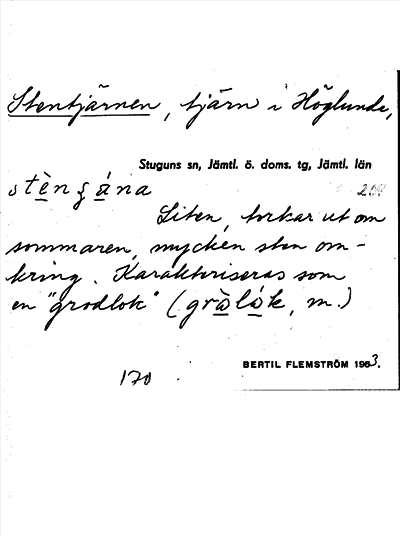 Stentjärnen, tjärn i Höglunda,
Stuguns sn, Jämtl. ö. doms. tg, Jämtl. län
Liten, torkar ut om
sommaren, mycken sten om-
kring. Karakteriseras som
en "grodlok" (gròlók, m.)
BERTIL FLEMSTRÖM 1953.
170